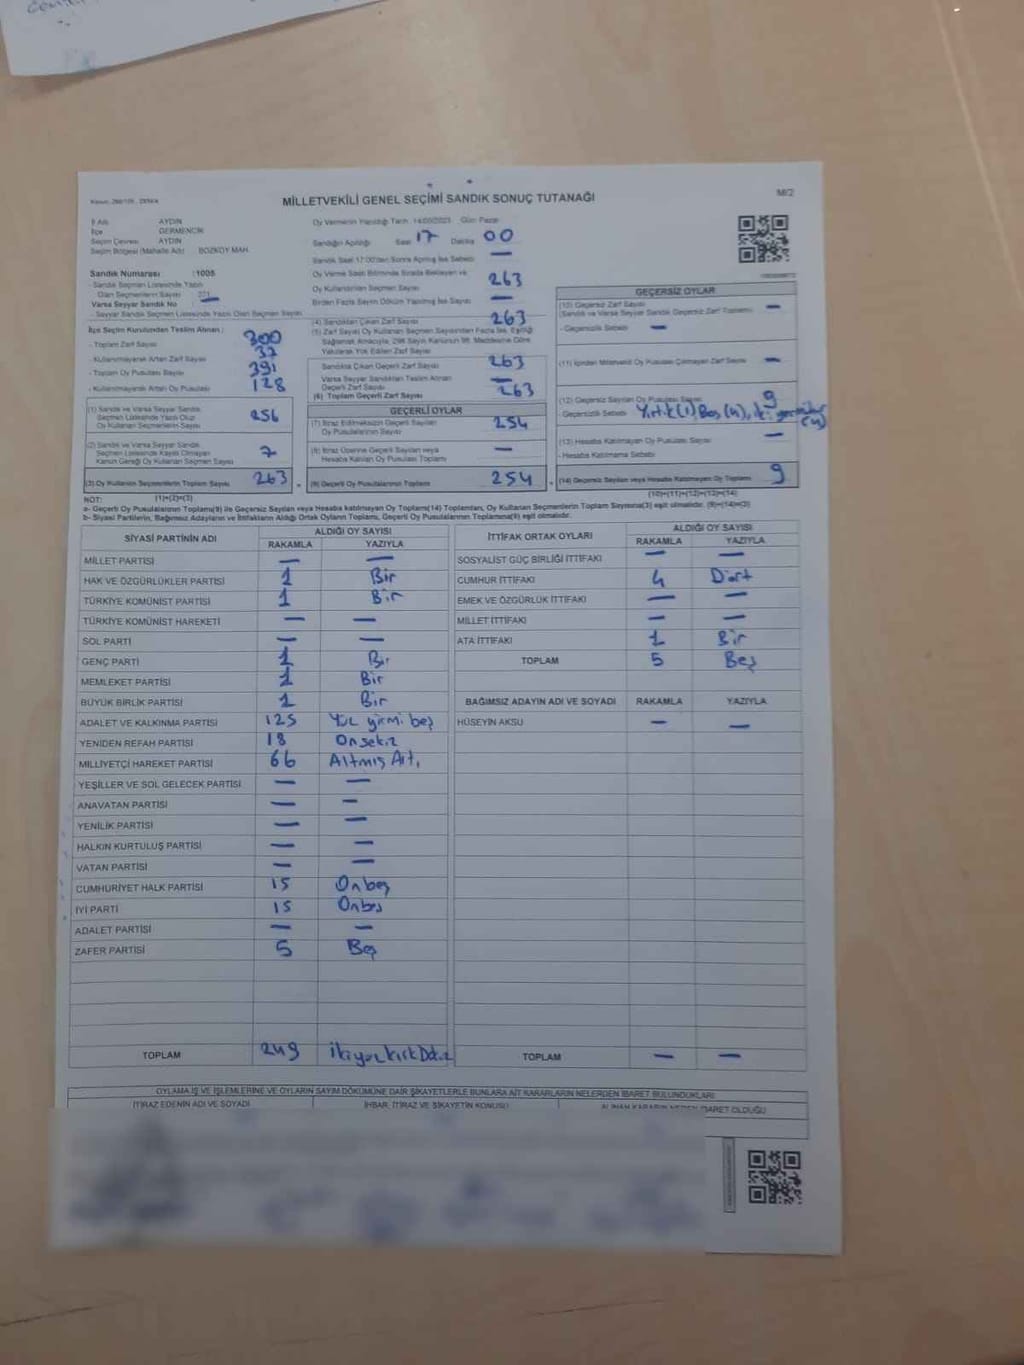 MİLLETVEKİLİ GENEL SEÇİMİ SANDIK SONUÇ TUTANAĞI
M/2
İl Adı AYDIN
İlçe GERMENCİK
Seçim Çevresi AYDIN
Seçim Bölgesi (Mahalle Adı) BOZKÖY MAH.
Sandık Numarası : 1005
- Sandık Seçmen Listesinde Yazılı
Olan Seçmenlerin Sayısı
Varsa Seyyar Sandık No —
- Seyyar Sandık Seçmen Listesinde Yazılı Olan Seçmen Sayısı
İlçe Seçim Kurulundan Teslim Alınan :
- Toplam Zarf Sayısı 300
- Kullanılmayarak Artan Zarf Sayısı 37
- Toplam Oy Pusulası Sayısı 391
- Kullanılmayarak Artan Oy Pusulası 128
(1) Sandık ve Varsa Seyyar Sandık
Seçmen Listesinde Yazılı Olup
Oy Kullanan Seçmenlerin Sayısı 256
(2) Sandık ve Varsa Seyyar Sandık
Seçmen Listesinde Kayıtlı Olmayan
Kanun Gereği Oy Kullanan Seçmen Sayısı 7
(3) Oy Kullanan Seçmenlerin Toplam Sayısı 263
Oy Vermenin Yapıldığı Tarih : 14/05/2023 Gün Pazar
Sandığın Açılışı Saat 17 Dakika 00
Sandık Saat 17:00'den Sonra Açılmış İse Sebebi —
Oy Verme Saati Bitiminde Sırada Bekleyen ve
Oy Kullandırılan Seçmen Sayısı 263
Birden Fazla Sayım Döküm Yapılmış İse Sayısı —
(4) Sandıktan Çıkan Zarf Sayısı 263
(5) Zarf Sayısı Oy Kullanan Seçmen Sayısından Fazla İse, Eşitliği
Sağlamak Amacıyla, 298 Sayılı Kanunun 98. Maddesine Göre
Yakılarak Yok Edilen Zarf Sayısı
Sandıkta Çıkan Geçerli Zarf Sayısı 263
Varsa Seyyar Sandıktan Teslim Alınan
Geçerli Zarf Sayısı —
(6) Toplam Geçerli Zarf Sayısı 263
GEÇERLİ OYLAR
(7) İtiraz Edilmeksizin Geçerli Sayılan
Oy Pusulalarının Sayısı 254
(8) İtiraz Üzerine Geçerli Sayılan veya
Hesaba Katılan Oy Pusulası Toplamı —
(9) Geçerli Oy Pusulalarının Toplamı 254
GEÇERSİZ OYLAR
(10) Geçersiz Zarf Sayısı
(Sandık ve Varsa Seyyar Sandık Geçersiz Zarf Toplamı) —
- Geçersizlik Sebebi —
(11) İçinden Milletvekili Oy Pusulası Çıkmayan Zarf Sayısı —
(12) Geçersiz Sayılan Oy Pusulası Sayısı 9
- Geçersizlik Sebebi Yırtık(1) Boş(4), iki (4)
(13) Hesaba Katılmayan Oy Pusulası Sayısı —
- Hesaba Katılmama Sebebi
(14) Geçersiz Sayılan veya Hesaba Katılmayan Oy Toplamı 9
NOT: (1)+(2)=(3) (10)+(11)+(12)+(13)=(14)
a- Geçerli Oy Pusulalarının Toplamı(9) ile Geçersiz Sayılan veya Hesaba katılmayan Oy Toplamı(14) Toplamları, Oy Kullanan Seçmenlerinin Toplam Sayısına(3) eşit olmalıdır. (9)+(14)=(3)
b- Siyasi Partilerin, Bağımsız Adayların ve İttifakların Aldığı Ortak Oyların Toplamı, Geçerli Oy Pusulalarının Toplamına(9) eşit olmalıdır.
SİYASİ PARTİNİN ADI ALDIĞI OY SAYISI
RAKAMLA YAZIYLA
MİLLET PARTİSİ — —
HAK VE ÖZGÜRLÜKLER PARTİSİ 1 Bir
TÜRKİYE KOMÜNİST PARTİSİ 1 Bir
TÜRKİYE KOMÜNİST HAREKETİ — —
SOL PARTİ — —
GENÇ PARTİ 1 Bir
MEMLEKET PARTİSİ 1 Bir
BÜYÜK BİRLİK PARTİSİ 1 Bir
ADALET VE KALKINMA PARTİSİ 125 Yüz yirmi beş
YENİDEN REFAH PARTİSİ 18 Onsekiz
MİLLİYETÇİ HAREKET PARTİSİ 66 Altmış Altı
YEŞİLLER VE SOL GELECEK PARTİSİ — —
ANAVATAN PARTİSİ — —
YENİLİK PARTİSİ — —
HALKIN KURTULUŞ PARTİSİ — —
VATAN PARTİSİ — —
CUMHURİYET HALK PARTİSİ 15 Onbeş
İYİ PARTİ 15 Onbeş
ADALET PARTİSİ — —
ZAFER PARTİSİ 5 Beş
TOPLAM 249 ikiyüzkırkDokuz
İTTİFAK ORTAK OYLARI ALDIĞI OY SAYISI
RAKAMLA YAZIYLA
SOSYALİST GÜÇ BİRLİĞİ İTTİFAKI — —
CUMHUR İTTİFAKI 4 Dört
EMEK VE ÖZGÜRLÜK İTTİFAKI — —
MİLLET İTTİFAKI — —
ATA İTTİFAKI 1 Bir
TOPLAM 5 Beş
BAĞIMSIZ ADAYIN ADI VE SOYADI RAKAMLA YAZIYLA
HÜSEYİN AKSU — —
TOPLAM — —
OYLAMA İŞ VE İŞLEMLERİNE VE OYLARIN SAYIM DÖKÜMÜNE DAİR ŞİKAYETLERLE BUNLARA AİT KARARLARIN NELERDEN İBARET BULUNDUKLARI
İTİRAZ EDENİN ADI VE SOYADI İHBAR, İTİRAZ VE ŞİKAYETİN KONUSU ALINAN KARARIN NEDEN İBARET OLDUĞU